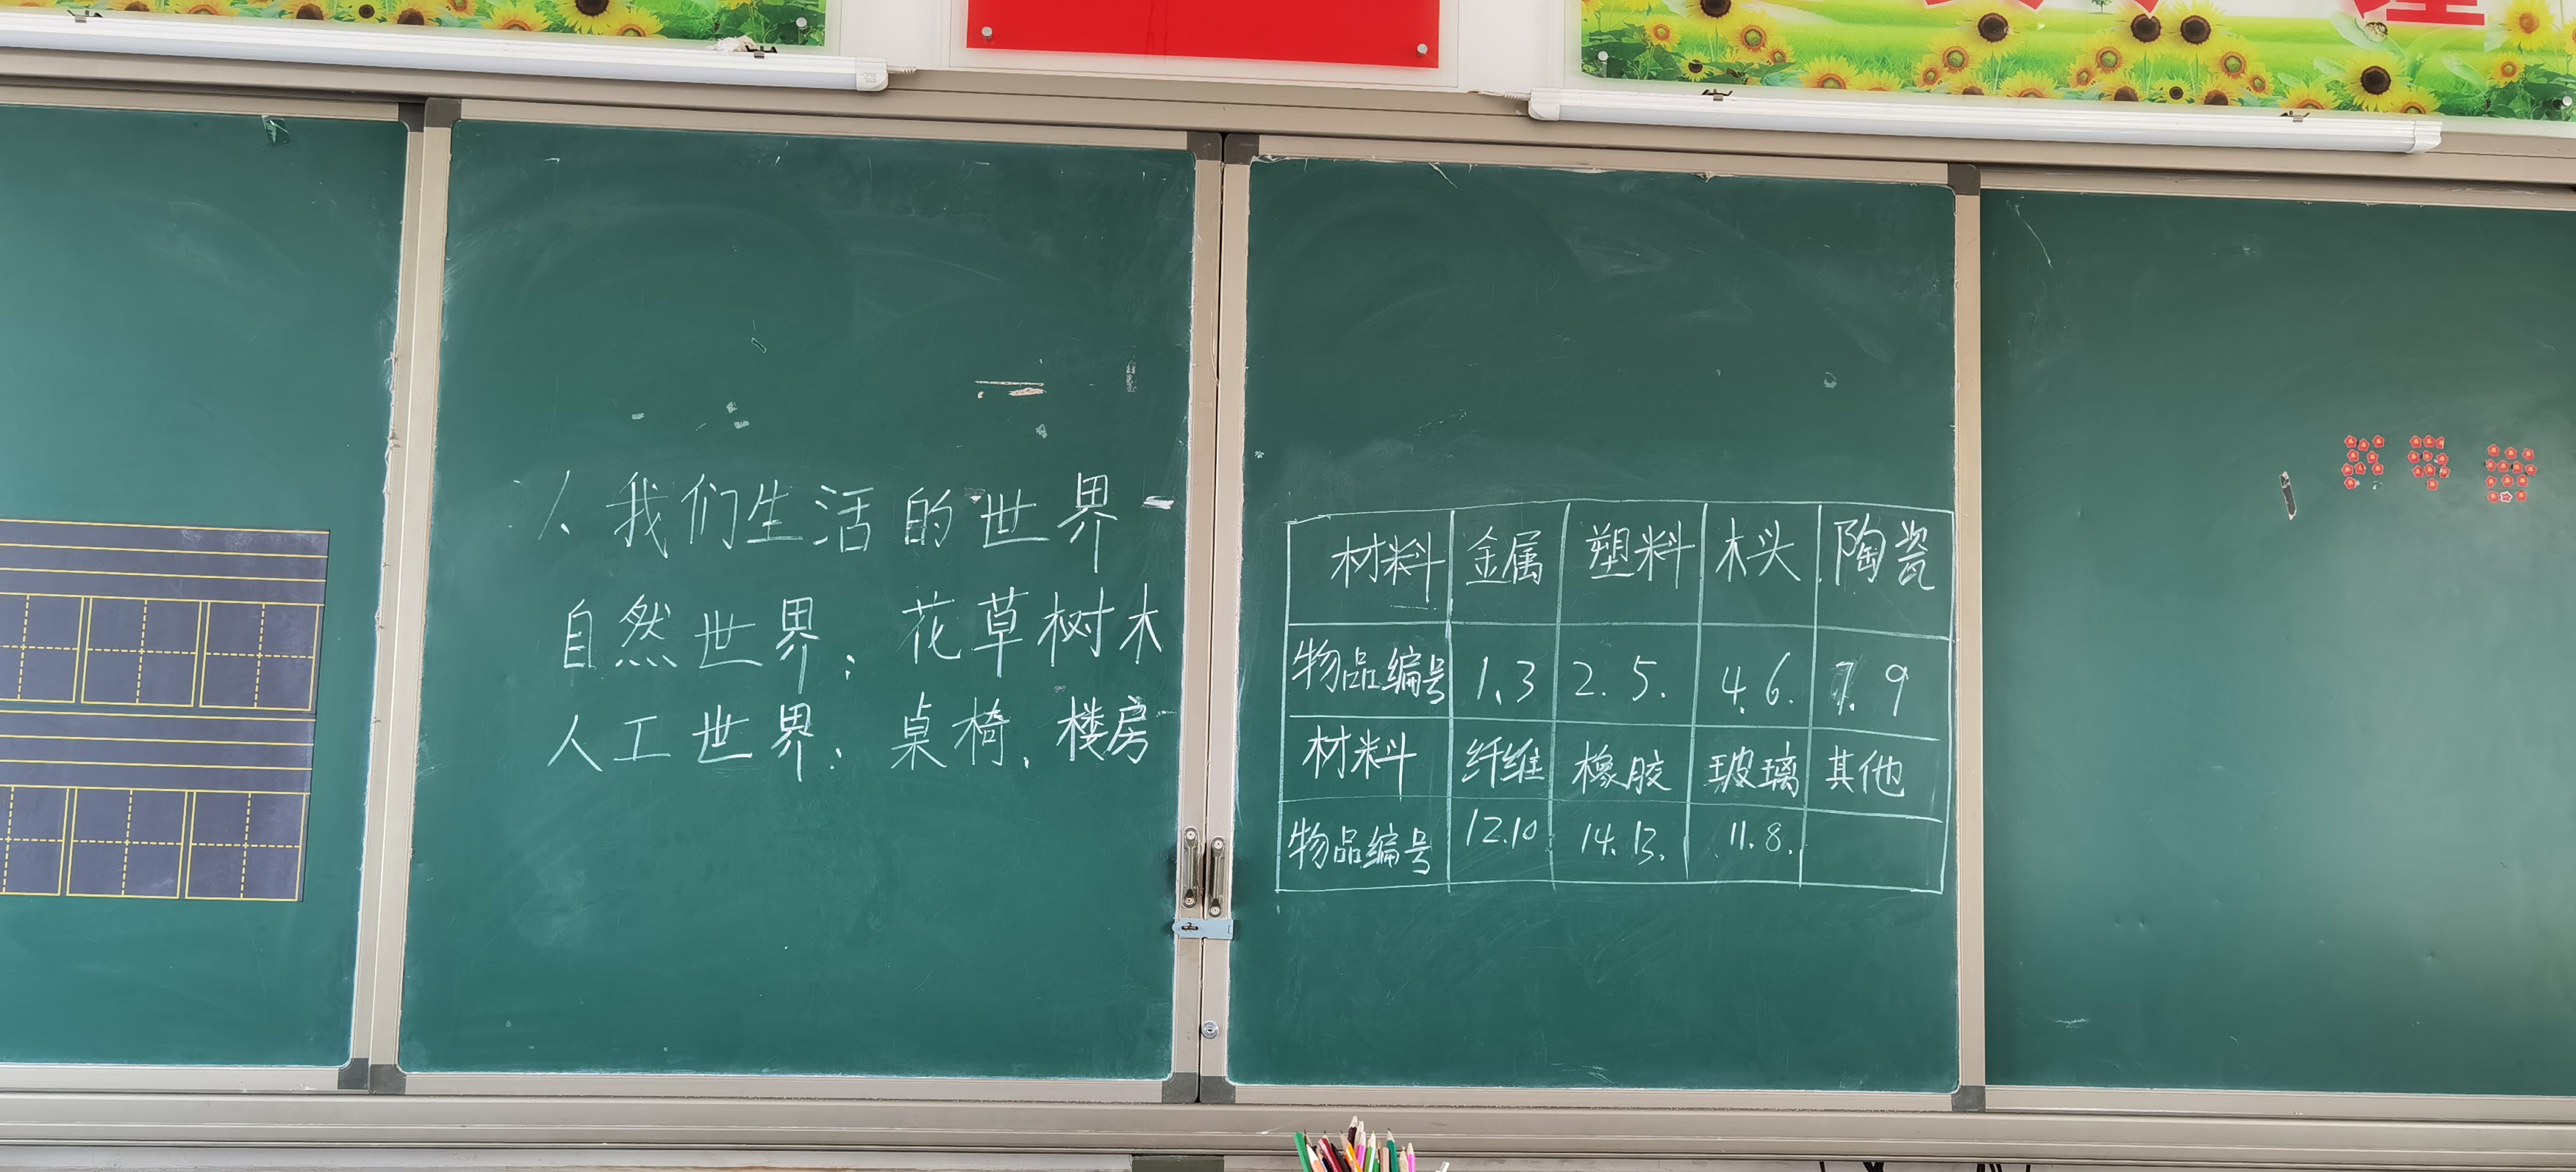 1、我们生活的世界
自然世界：花草树木
人工世界：桌椅、楼房
材料 金属 塑料 木头 陶瓷
物品编号 1、3 2. 5. 4. 6. 7. 9
材料 纤维 橡胶 玻璃 其他
物品编号 12.10 14. 13. 11. 8.